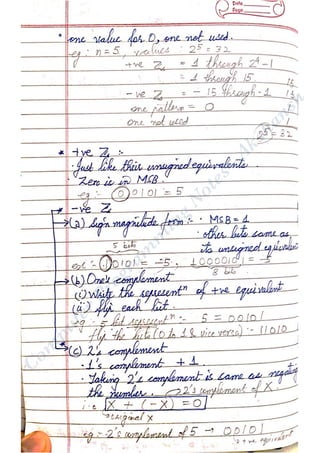 Date
Page
• one value for 0, one not used.
eg: n=5, values : 2⁵ = 32
+ve Z = 1 through 2⁴-1
= 1 through 15 15
-ve Z = -15 through -1 15
one pattern = 0 1
one not used 1
2⁵ = 32
* +ve Z :-
• Just like their unsigned equivalents.
• Zero is in MSB.
eg :- 00101 = 5
* -ve Z
→ (a) Sign magnitude form :- • MSB = 1
• other bits same as
its unsigned equivalent
5 bits
ex :- 10101 = -5, 10000101 = -5
8 bits
→ (b) One's complement
(i) Write the representⁿ of +ve equivalent
(ii) flip each bit.
eg :- 5 bit representⁿ :- 5 = 00101
flip the bits (0 to 1 & vice versa) :- 11010
→ (c) 2's complement
• 1's complement + 1.
• Taking 2's complement is same as negating
the number. → 2's complement of X
i.e X + (-X) = 0
→ original X
eg :- 2's complement of 5 → 00101
→ +ve equivalent